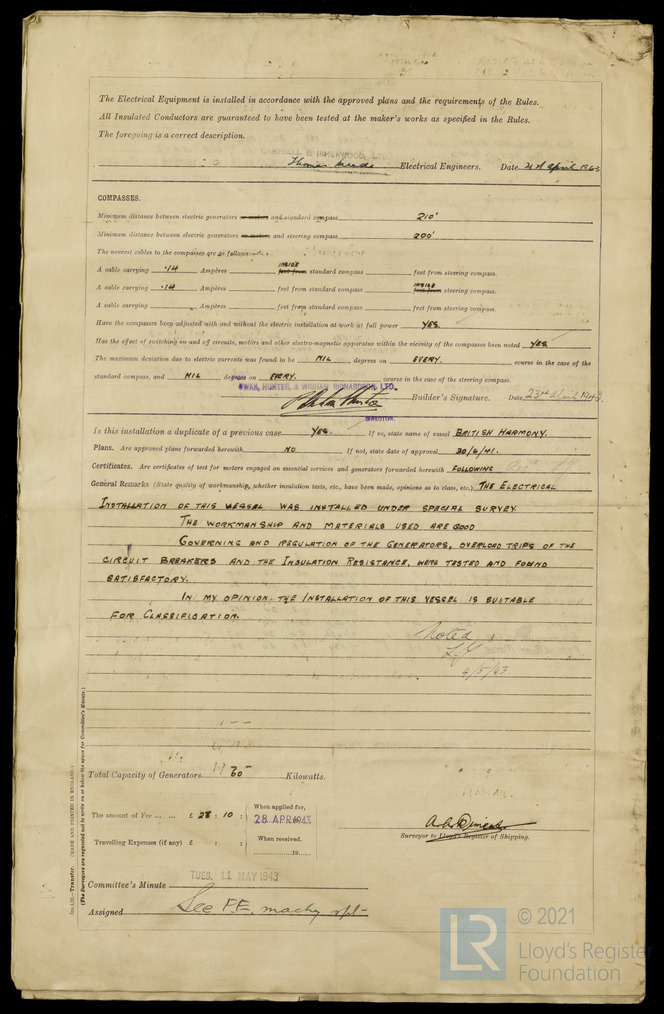 The Electrical Equipment is installed in accordance with the approved plans and the requirements of the Rules.
All Insulated Conductors are guaranteed to have been tested at the maker's works as specified in the Rules.
The foregoing is a correct description.
Electrical Engineers. Date 21st April 1943
COMPASSES.
Minimum distance between electric generators or motors and standard compass 210'
Minimum distance between electric generators or motors and steering compass 200'
The nearest cables to the compasses are as follows:—
A cable carrying .14 Ampères INSIDE feet from standard compass feet from steering compass.
A cable carrying .14 Ampères feet from standard compass INSIDE feet from steering compass.
A cable carrying Ampères feet from standard compass feet from steering compass.
Have the compasses been adjusted with and without the electric installation at work at full power YES.
Has the effect of switching on and off circuits, motors and other electro-magnetic apparatus within the vicinity of the compasses been noted YES
The maximum deviation due to electric currents was found to be NIL degrees on EVERY. course in the case of the
standard compass, and NIL degrees on EVERY. course in the case of the steering compass.
SWAN, HUNTER, & WIGHAM RICHARDSON, LTD.
Builder's Signature. Date 23rd April 1943
DIRECTOR.
Is this installation a duplicate of a previous case YES. If so, state name of vessel BRITISH HARMONY.
Plans. Are approved plans forwarded herewith NO If not, state date of approval 30/6/41.
Certificates. Are certificates of test for motors engaged on essential services and generators forwarded herewith FOLLOWING
General Remarks (State quality of workmanship, whether insulation tests, etc., have been made, opinions as to class, etc.) THE ELECTRICAL
INSTALLATION OF THIS VESSEL WAS INSTALLED UNDER SPECIAL SURVEY.
THE WORKMANSHIP AND MATERIALS USED ARE GOOD
GOVERNING AND REGULATION OF THE GENERATORS, OVERLOAD TRIPS OF THE
CIRCUIT BREAKERS AND THE INSULATION RESISTANCE, WERE TESTED AND FOUND
SATISFACTORY.
IN MY OPINION THE INSTALLATION OF THIS VESSEL IS SUITABLE
FOR CLASSIFICATION.
Noted
4/5/43
Total Capacity of Generators 60 Kilowatts.
The amount of Fee ... ... £ 28 : 10 : When applied for, 28 APR 1943
Travelling Expenses (if any) £ : : When received, 19
Surveyor to Lloyd's Register of Shipping.
Committee's Minute TUES. 11 MAY 1943
Assigned See F.E. machy rpt
5m.4.38.—Transfer. (MADE AND PRINTED IN ENGLAND.)
(The Surveyors are requested not to write on or below the space for Committee's Minute.)
LR
© 2021
Lloyd's Register
Foundation